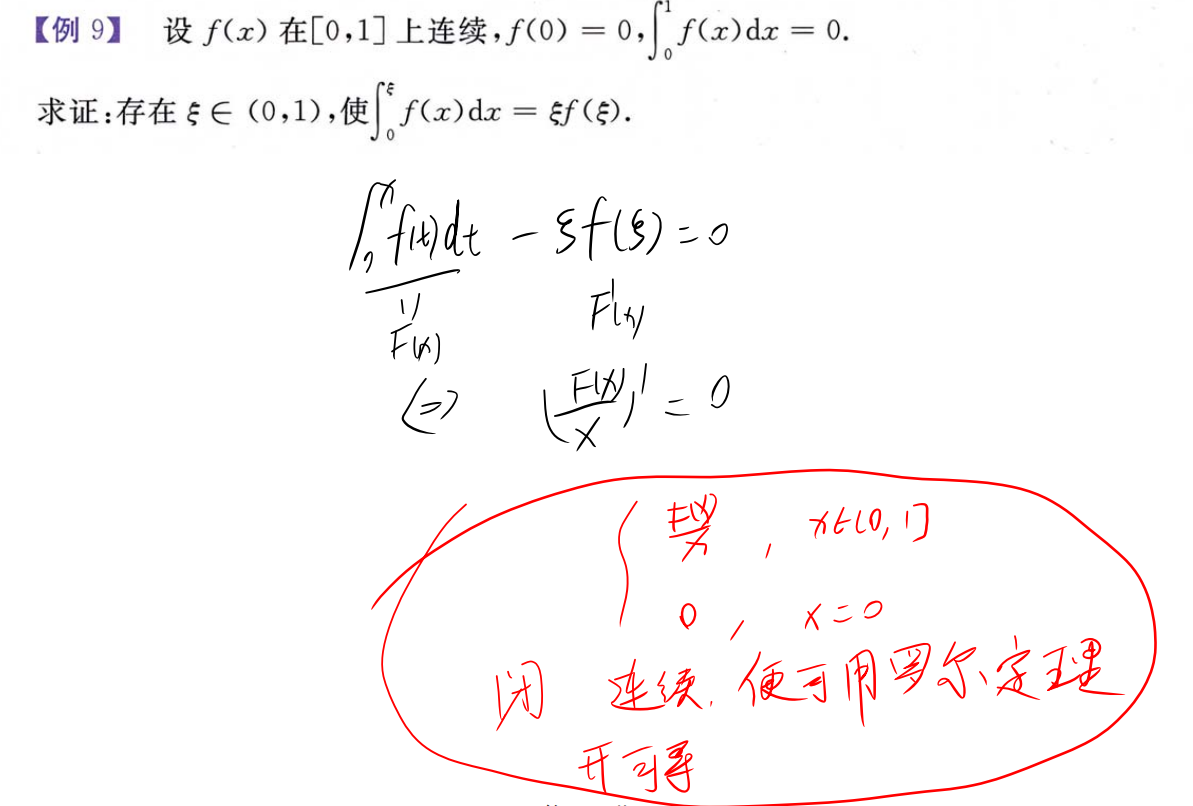 【例 9】 设 f(x) 在[0,1] 上连续,f(0) = 0,∫₀¹ f(x)dx = 0.
求证:存在 ξ ∈ (0,1),使∫₀^ξ f(x)dx = ξf(ξ).
∫₀ˣ f(t)dt − ξf(ξ) = 0
F(x) F'(x)
⇔ (F(x)/x)' = 0
{ F(x)/x , x∈(0,1]
0 , x=0
闭 连续, 便可用罗尔定理
开可导